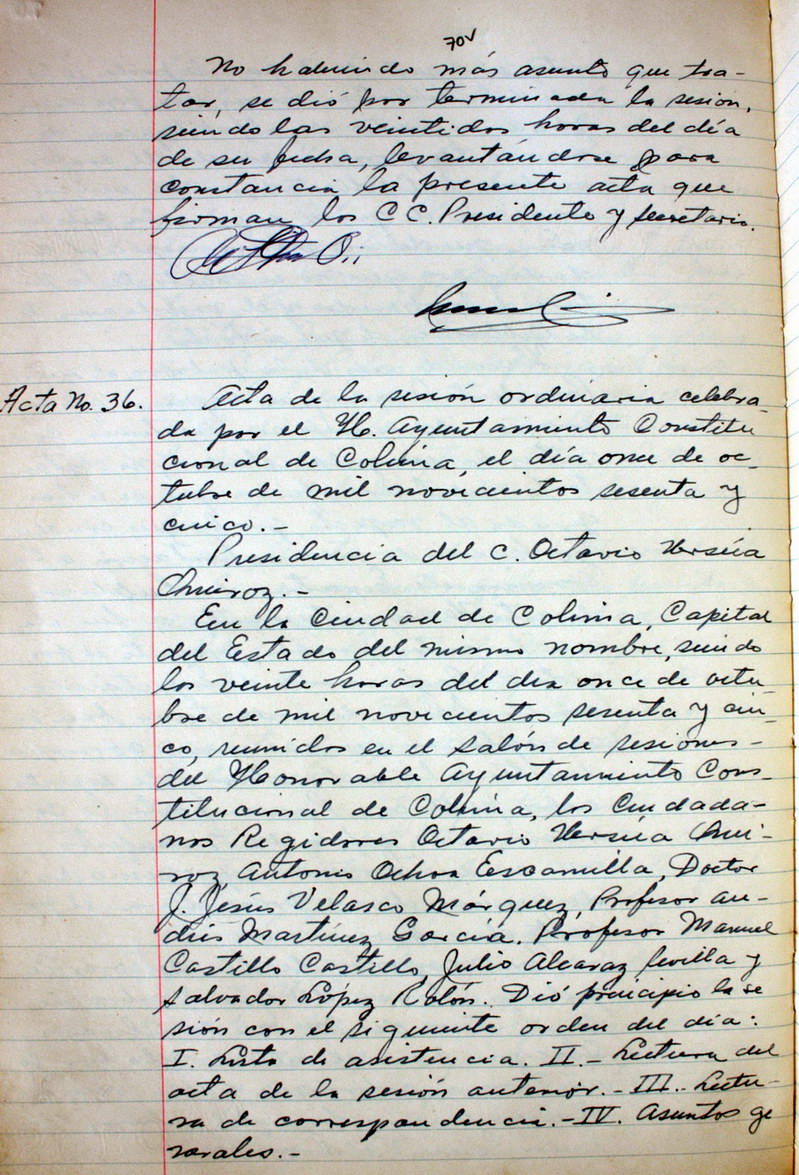 70v
No habiendo más asunto que tra-
tar, se dió por terminada la sesión,
siendo las veintidos horas del día
de su fecha, levantándose para
constancia la presente acta que
firman los C C. Presidente y Secretario.
Acta No. 36.
Acta de la sesión ordinaria celebra-
da por el H. Ayuntamiento Constitu
cional de Colima, el día once de oc-
tubre de mil novecientos sesenta y
cinco.-
Presidencia del C. Octavio Ursúa
Quiroz.-
En la Ciudad de Colima, Capital
del Estado del mismo nombre, siendo
las veinte horas del día once de octu-
bre de mil novecientos sesenta y cin-
co, reunidos en el salón de sesiones-
del Honorable Ayuntamiento Cons-
titucional de Colima, los Ciudada-
nos Regidores Octavio Ursúa Qui-
roz, Antonio Ochoa Escamilla, Doctor
J. Jesús Velasco Márquez, Profesor An-
drés Martínez García. Profesor Manuel
Castillo Castillo, Julio Alcaraz Sevilla y
Salvador López Rolón. Dió principio la se
sión con el siguiente orden del día:
I. Lista de asistencia. II.- Lectura del
acta de la sesión anterior.- III.- Lectu-
ra de correspondencia.- IV. Asuntos ge
nerales.-